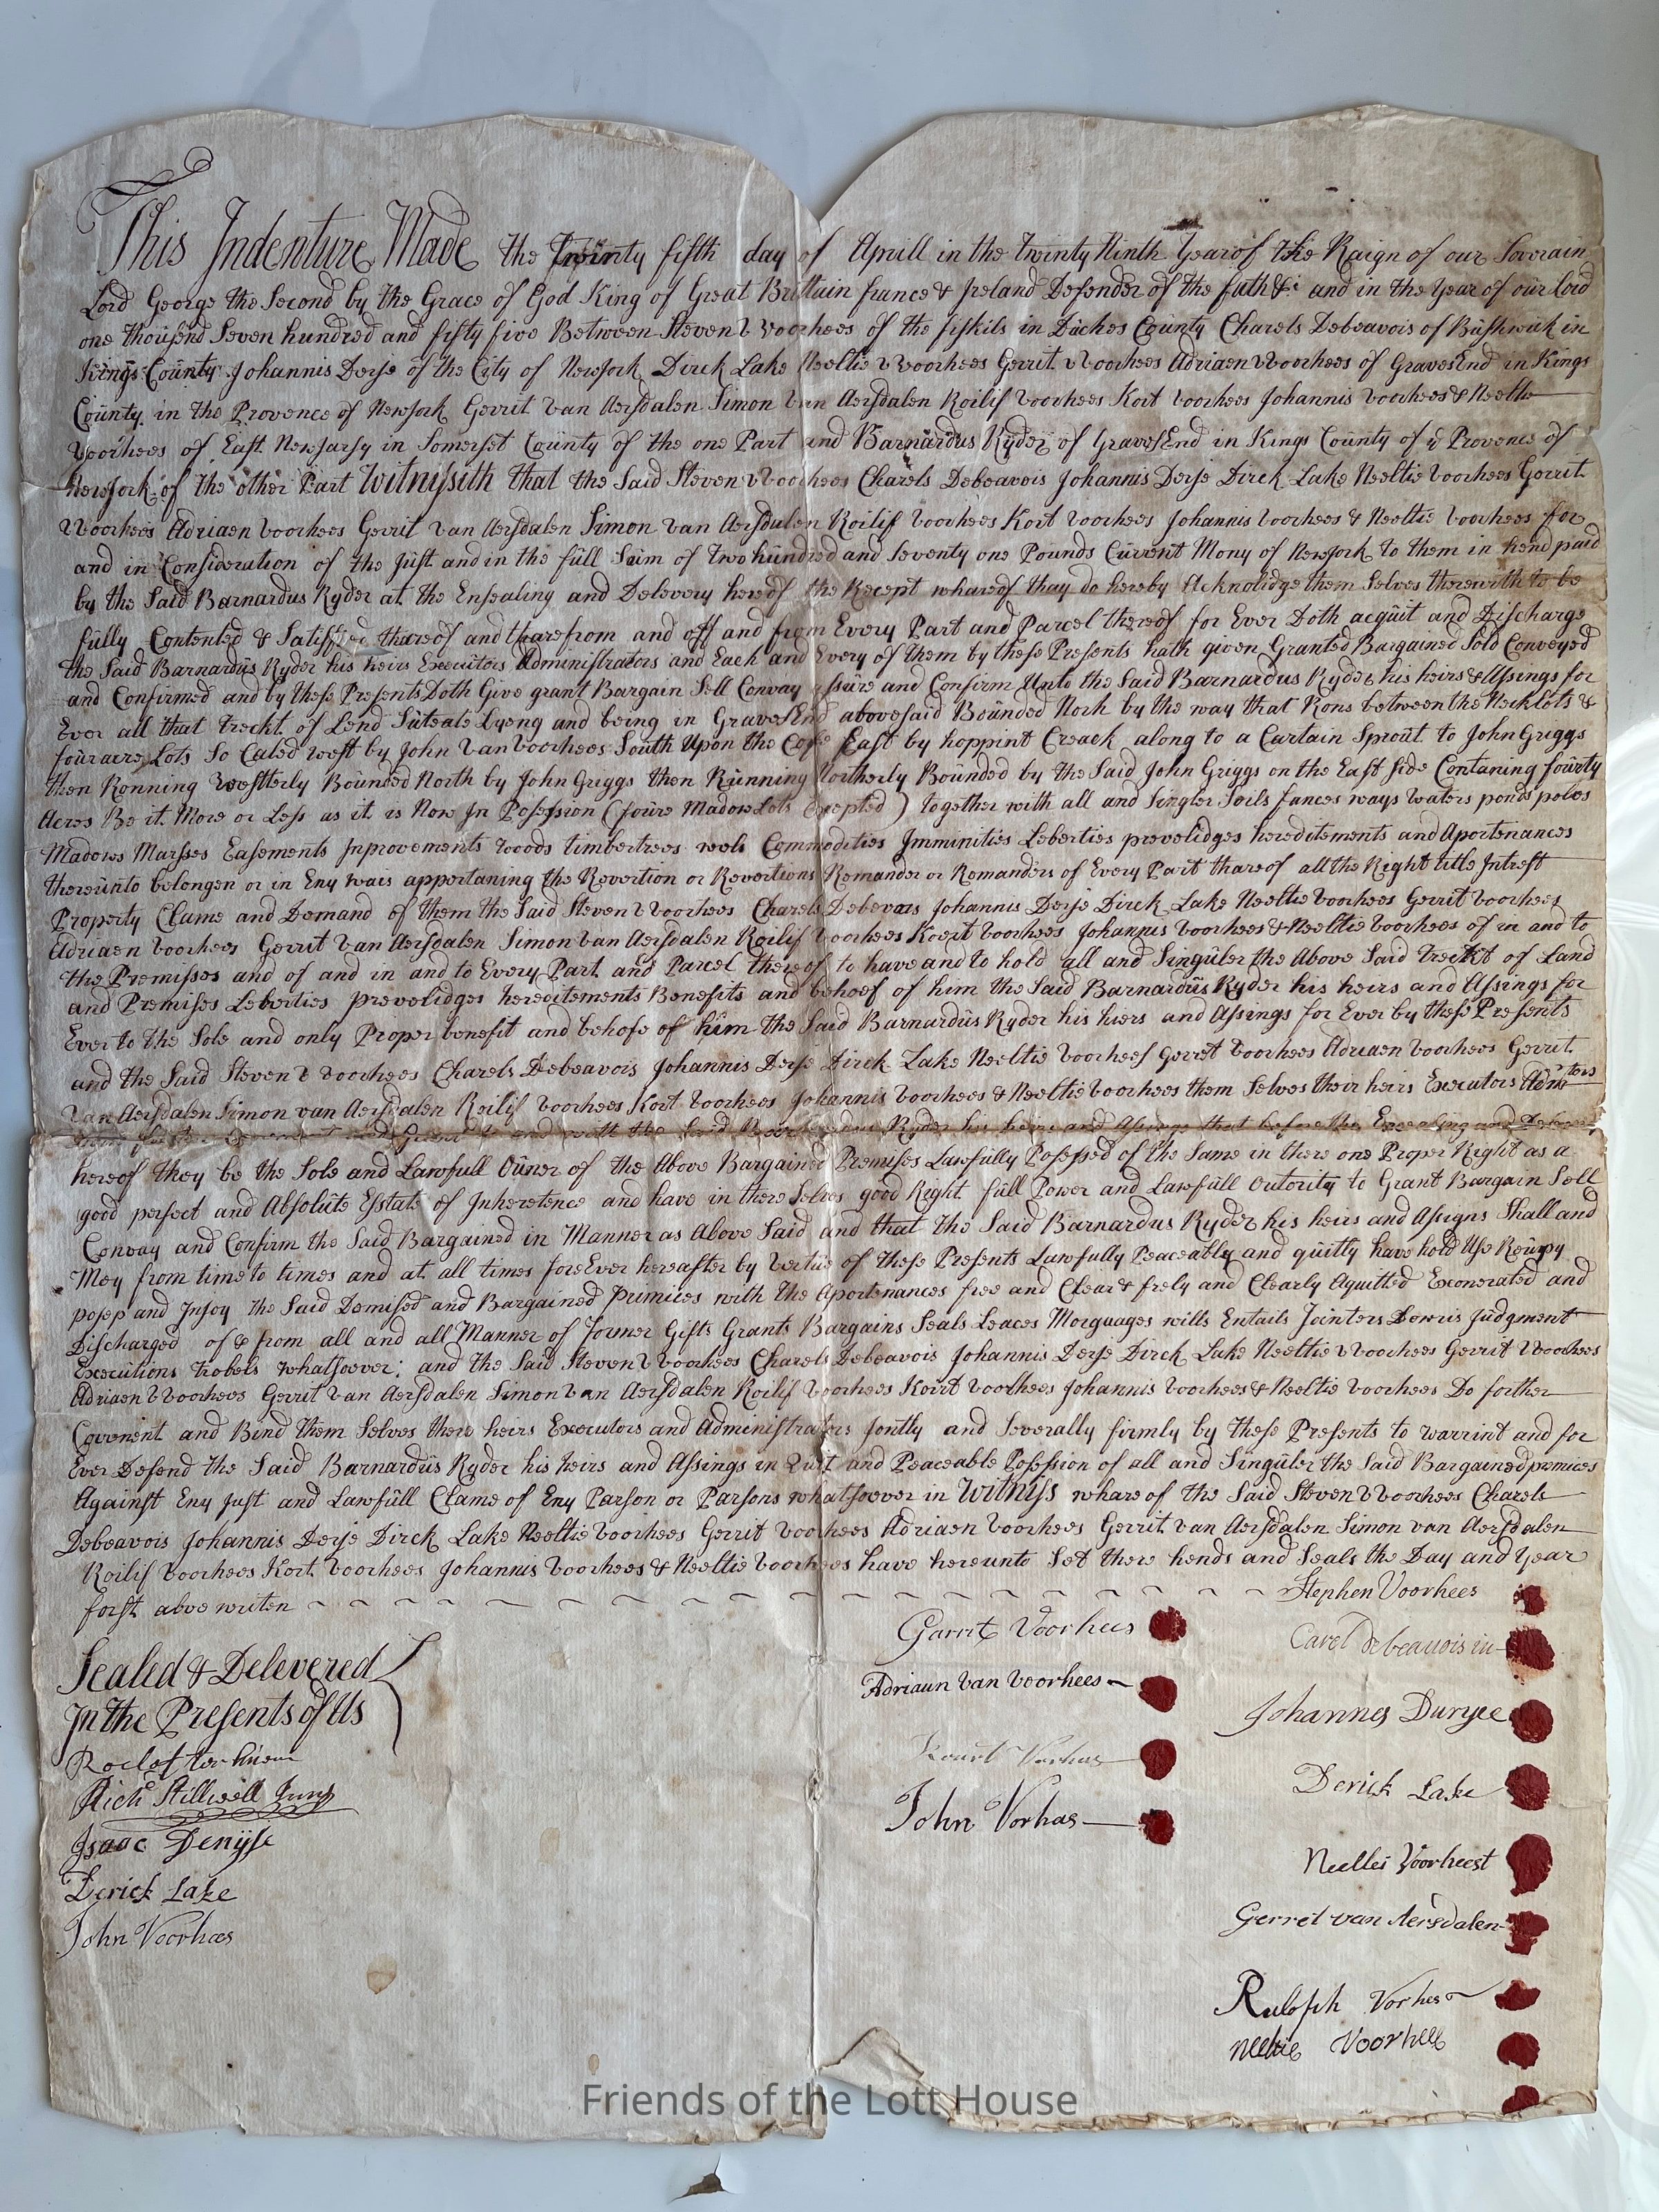 This Indenture Made the Twinty fifth day of Aprill in the twinty Ninth Year of the Raign of our Soverain
Lord George the Second by the Grace of God King of Great Brittain france & Ireland Defender of the fath &c and in the Year of our Lord
one thousend Seven hundred and fifty five Between Steven V Voorhees of the fiskils in Duches County Charels Debeavois of Bushwick in
Kings County Johannis Derje of the City of NewJork Dirck Lake Neeltie Voorhees Gerrit Voorhees Adriaen Voorhees of GravesEnd in Kings
County in the Provence of NewJork Gerrit Van Aersdalen Simon Van Aersdalen Roilif Voorhees Kort Voorhees Johannis Voorhees & Neeltie
Voorhees of East NewJarsy in Somerset County of the one Part and Barnardus Ryder of GravesEnd in Kings County of ye Provence of
NewJork of the other Part Witnissith that the Said Steven V Voorhees Charels Debeavois Johannis Derje Dirck Lake Neeltie Voorhees Gerrit
Voorhees Adriaen Voorhees Gerrit van Aersdalen Simon van Aersdalen Roilif Voorhees Kort Voorhees Johannis Voorhees & Neeltie Voorhees for
and in Consideration of the Just and in the full Suim of two hundred and Seventy one Pounds Current Mony of NewJork to them in hend paid
by the Said Barnardus Ryder at the Ensealing and Delevery hereof the Recept whareof thay do hereby Acknolidge them Selves therewith to be
fully Contented & Satisfied thareof and tharefrom and off and from Every Part and Parcel thereof for Ever Doth acquit and Discharge
the Said Barnardus Ryder his heirs Executors Administrators and Each and Every of them by these Presents hath given Granted Bargained Sold Conveyed
and Confirmed and by these Presents Doth Give grant Bargain Sell Convay assure and Confirm Unto the Said Barnardus Ryder his heirs & Assings for
Ever all that treckt of Lend Suteate Lyeng and being in GravesEnd abovesaid Bounded North by the way that Rons between the Neck Lots &
four acre Lots So Caled west by John Van Voorhees South Upon the East by hoppint Creack along to a Cartain Sprout to John Griggs
then Ronning westterly Bounded North by John Griggs then Running Northerly Bounded by the Said John Griggs on the East Side Contaning fourty
Acres Be it More or Less as it is Now In Posession (foure Madow Lots Exepted) together with all and Singler Soils fances ways waters ponds poles
Madows Marsses Easements Inprovements woods timbertrees Commodities Imminities Leberties prevolidges hereditements and Aportenances
thereunto belongen or in Eny wais appertaning the Revertion or Revertions Remander or Remanders of Every Part thareof all the Right title Intrest
Property Clame and Demand of them the Said Steven V Voorhees Charels Debevois Johannis Derje Dirck Lake Neeltie Voorhees Gerrit Voorhees
Adriaen Voorhees Gerrit Van Aersdalen Simon Van Aersdalen Roilif Voorhees Koert Voorhees Johannis Voorhees & Neeltie Voorhees of in and to
the Premisses and of and in and to Every Part and Parcel thereof to have and to hold all and Singuler the Above Said treckt of Land
and Premises Leberties prevolidges hereditements Benefits and behoof of him the Said Barnardus Ryder his heirs and Assings for
Ever to the Sole and only Proper benefit and behofe of him the Said Barnardus Ryder his hiers and Assings for Ever by these Presents
and the Said Steven V Voorhees Charels Debeavois Johannis Derje Dirck Lake Neeltie Voorhees Gerret Voorhees Adriaen Voorhees Gerrit
Van Aersdalen Simon van Aersdalen Roilif Voorhees Kort Voorhees Johannis Voorhees & Neeltie Voorhees them Selves their heirs Executors Admrtors
and with the Said Barnardus Ryder his heirs and Assings that before the Ensealing and Delevery
hereof they be the Sole and Lawfull Ouner of the Above Bargained Premises Lawfully Posessed of the Same in there one Proper Right as a
good perfect and Absolute Esstate of Inheretence and have in there Selves good Right full Power and Lawfull outority to Grant Bargain Sell
Convay and Confirm the Said Bargained in Manner as Above Said and that the Said Barnardus Ryder his heirs and Assigns Shall and
May from time to times and at all times foreEver hereafter by Vertue of these Presents Lawfully Peaceably and quitly have hold Use
posess and Injoy the Said Demised and Bargained Primices with the Aportenances free and Clear & frely and Clearly Aquitted Exonerated and
Discharged of & from all and all Manner of former Gifts Grants Bargains Seals Leaces Morguages wills Entails Jointers Dowris Judgment
Executions trobels whatsoever; and the Said Steven V Voorhees Charels Debeavois Johannis Derje Dirck Lake Neeltie Voorhees Gerrit Voorhees
Adriaen Voorhees Gerrit Van Aersdalen Simon Van Aersdalen Roilif Voorhees Kort Voorhees Johannis Voorhees & Neeltie Voorhees Do forther
Covenent and Bind them Selves there heirs Executors and Administrators Jontly and Severally firmly by these Presents to warrint and for
Ever Defend the Said Barnardus Ryder his heirs and Assings in Quit and Peaceable Posession of all and Singuler the Said Bargained premices
Against Eny Just and Lawfull Clame of Eny Parson or Parsons whatsoever in Witniss whareof the Said Steven V Voorhees Charels
Debeavois Johannis Derje Dirck Lake Neeltie Voorhees Gerrit Voorhees Adriaen Voorhees Gerrit van Aersdalen Simon van Aersdalen
Roilif Voorhees Kort Voorhees Johannis Voorhees & Neeltie Voorhees have hereunto Set there hends and Seals the Day and Year
forst above writen
Stephen Voorhees
Garrit Voorhees
Carel debeauois
Sealed & Delevered
In the Presents of Us
Adriaun Van Voorhees
Johannes Duryee
Roelof
Richd Stillwell Junr
Kourt Vorhas
Derick Lake
John Vorhas
Isaac Denijse
Neellei Voorheest
Derick Lake
Gerret van Aersdalen
John Voorhees
Rulofh Vorhes
Neeltie Voorhees
Friends of the Lott House